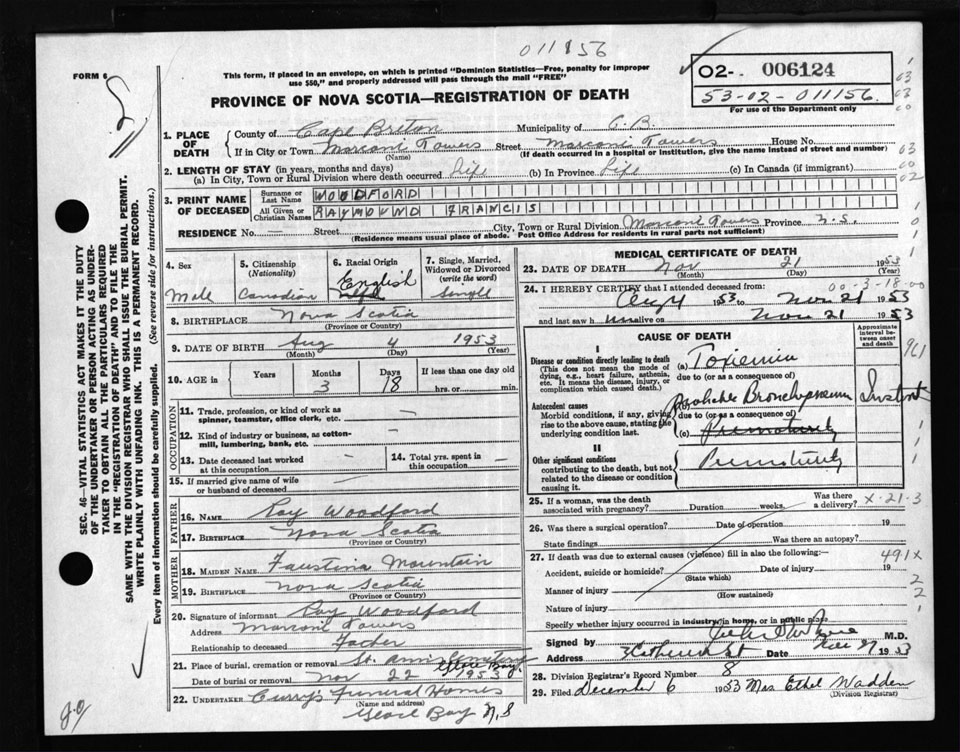 011156
FORM 6
This form, if placed in an envelope, on which is printed "Dominion Statistics—Free, penalty for improper
use $50," and properly addressed will pass through the mail "FREE"
PROVINCE OF NOVA SCOTIA—REGISTRATION OF DEATH
02- 006124
53-02-011156
For use of the Department only
SEC. 46—VITAL STATISTICS ACT MAKES IT THE DUTY
OF THE UNDERTAKER OR PERSON ACTING AS UNDER-
TAKER TO OBTAIN ALL THE PARTICULARS REQUIRED
IN THE "REGISTRATION OF DEATH" AND TO FILE THE
SAME WITH THE DIVISION REGISTRAR WHO SHALL ISSUE THE BURIAL PERMIT.
WRITE PLAINLY WITH UNFADING INK. THIS IS A PERMANENT RECORD.
Every item of Information should be carefully supplied. (See reverse side for instructions.)
1. PLACE OF DEATH County of Cape Breton Municipality of C.B.
If in City or Town Marconi Towers Street Marconi Towers House No.
(Name) (If death occurred in a hospital or institution, give the name instead of street and number)
2. LENGTH OF STAY (in years, months and days)
(a) In City, Town or Rural Division where death occurred Life (b) In Province Life (c) In Canada (if immigrant)
3. PRINT NAME OF DECEASED Surname or Last Name WOODFORD
All Given or Christian Names RAYMOUND FRANCIS
RESIDENCE No. — Street City, Town or Rural Division Marconi Towers Province N.S.
(Residence means usual place of abode. Post Office Address for residents in rural parts not sufficient)
4. Sex Male
5. Citizenship (Nationality) Canadian
6. Racial Origin English
7. Single, Married, Widowed or Divorced (write the word) Single
8. BIRTHPLACE Nova Scotia
(Province or Country)
9. DATE OF BIRTH Aug 4 1953
(Month) (Day) (Year)
10. AGE in Years Months 3 Days 18 If less than one day old hrs. or min.
OCCUPATION
11. Trade, profession, or kind of work as spinner, teamster, office clerk, etc. —
12. Kind of industry or business, as cotton-mill, lumbering, bank, etc. —
13. Date deceased last worked at this occupation —
14. Total yrs. spent in this occupation —
15. If married give name of wife or husband of deceased
FATHER
16. Name Roy Woodford
17. Birthplace Nova Scotia
(Province or Country)
MOTHER
18. Maiden Name Faustina Mountain
19. Birthplace Nova Scotia
(Province or Country)
20. Signature of informant Roy Woodford
Address Marconi Towers
Relationship to deceased Father
21. Place of burial, cremation or removal St. Ann Cemetery Glace Bay
Date of burial or removal Nov 22 1953
22. UNDERTAKER Curry's Funeral Homes
(Name and address)
Glace Bay N.S
MEDICAL CERTIFICATE OF DEATH
23. DATE OF DEATH Nov 21 1953
(Month) (Day) (Year)
00-3-18-00
24. I HEREBY CERTIFY that I attended deceased from:
Aug 4 1953 to Nov 21 1953
and last saw h im alive on Nov 21 1953
CAUSE OF DEATH
Approximate interval between onset and death
I
Disease or condition directly leading to death
(This does not mean the mode of dying, e.g., heart failure, asthenia, etc. It means the disease, injury, or complication which caused death.)
(a) Toxiemia
due to (or as a consequence of)
Antecedent causes
Morbid conditions, if any, giving rise to the above cause, stating the underlying condition last.
Probable Bronchopneum
due to (or as a consequence of)
(c) Prematurity
II
Other significant conditions
contributing to the death, but not related to the disease or condition causing it.
Prematurity
25. If a woman, was the death associated with pregnancy? Duration weeks. Was there a delivery? X-21-3
26. Was there a surgical operation? Date of operation 19
State findings Was there an autopsy?
27. If death was due to external causes (violence) fill in also the following:— 491X
Accident, suicide or homicide? Date of injury 19
(State which)
Manner of injury
(How sustained)
Nature of injury
Specify whether injury occurred in industry, in home, or in public place
Signed by M.D.
Address Date Nov 27 1953
28. Division Registrar's Record Number 8
29. Filed December 6 1953 Mrs Ethel Wadden
(Division Registrar)